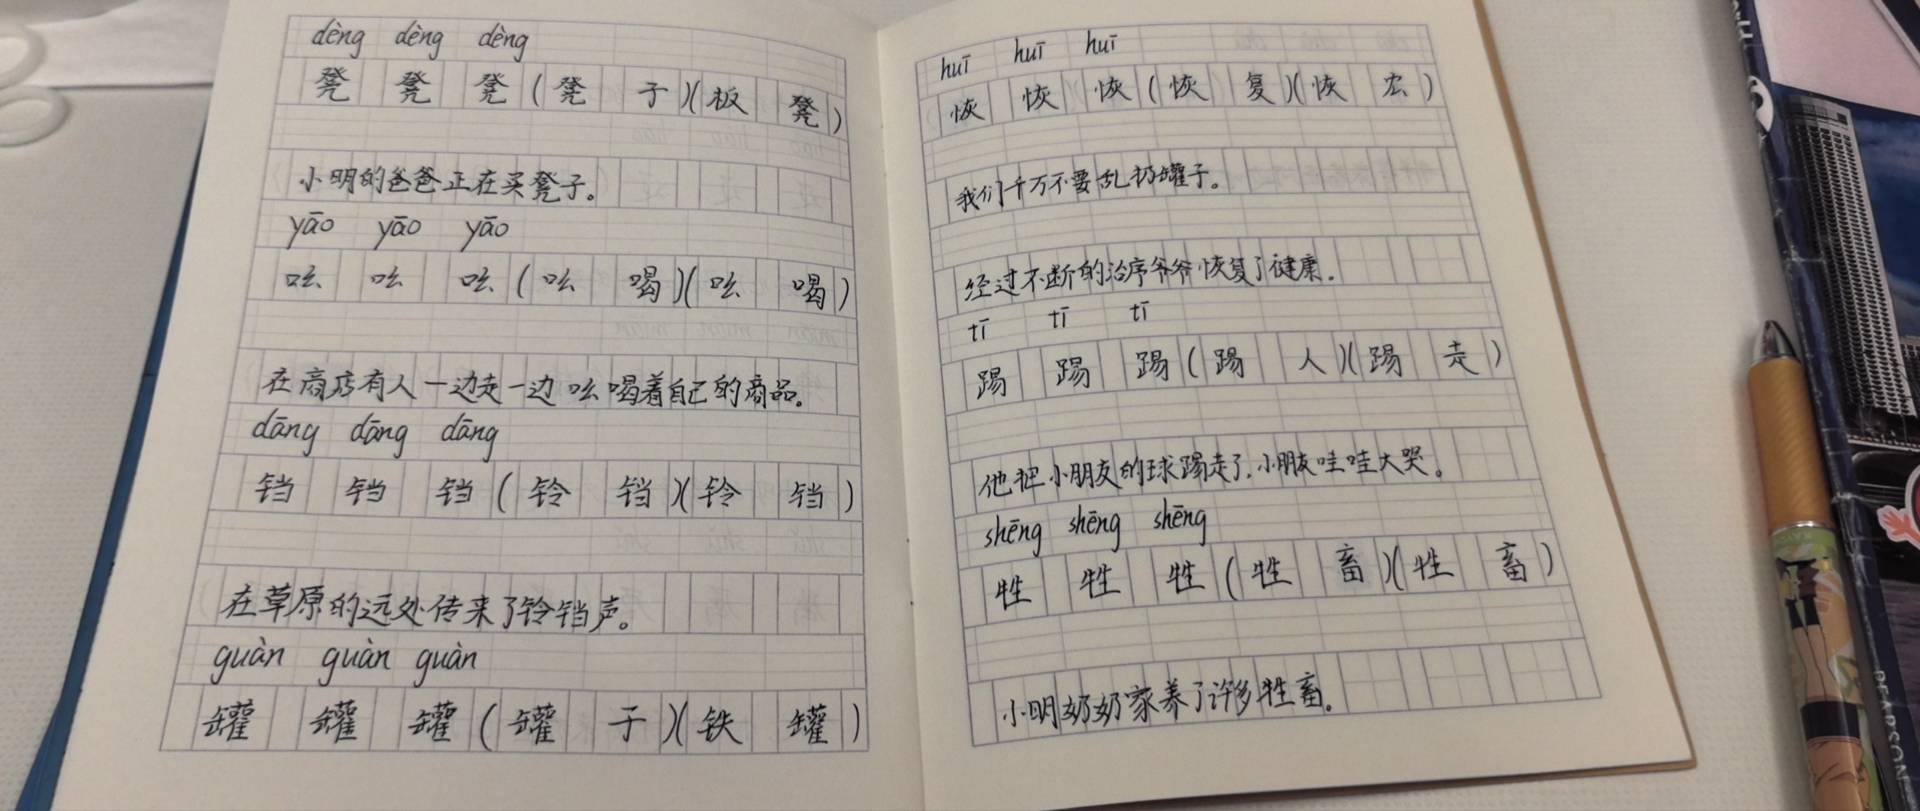 dèng dèng dèng
凳 凳 凳 (凳 子)(板 凳)
小明的爸爸正在买凳子。
yāo yāo yāo
吆 吆 吆 (吆 喝)(吆 喝)
在商店有人一边走一边吆喝着自己的商品。
dāng dāng dāng
铛 铛 铛 (铃 铛)(铃 铛)
在草原的远处传来了铃铛声。
guàn guàn guàn
罐 罐 罐 (罐 子)(铁 罐)
huī huī huī
恢 恢 恢 (恢 复)(恢 宏)
我们千万不要乱扔罐子。
经过不断的治疗爷爷恢复了健康.
tī tī tī
踢 踢 踢 (踢 人)(踢 走)
他把小朋友的球踢走了,小朋友哇哇大哭。
shēng shēng shēng
牲 牲 牲 (牲 畜)(牲 畜)
小明奶奶家养了许多牲畜。
PEARSON